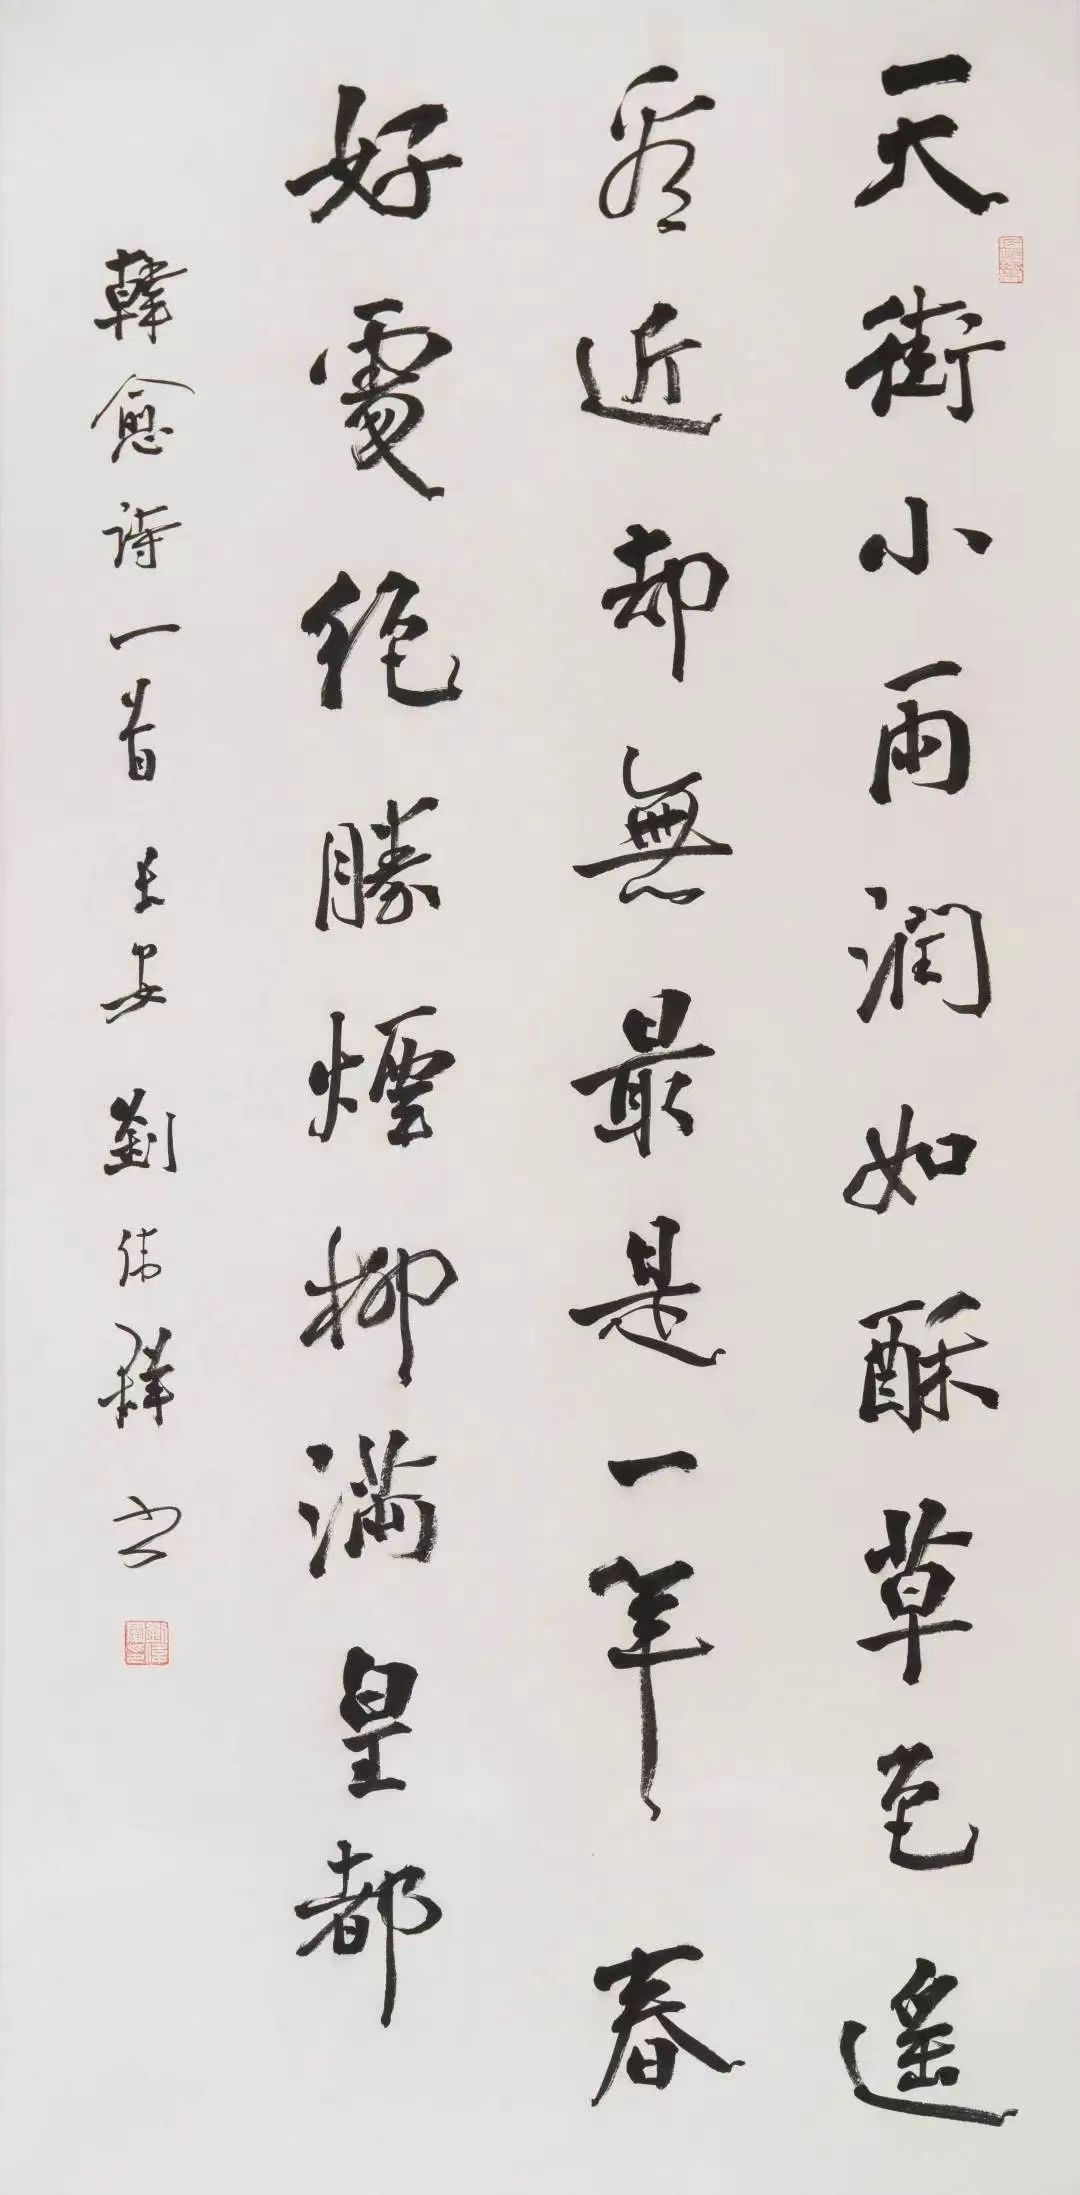 天街小雨潤如酥草色遙
看近却無最是一年春
好處絕勝煙柳滿皇都
韓愈詩一首長安劉偉祥書